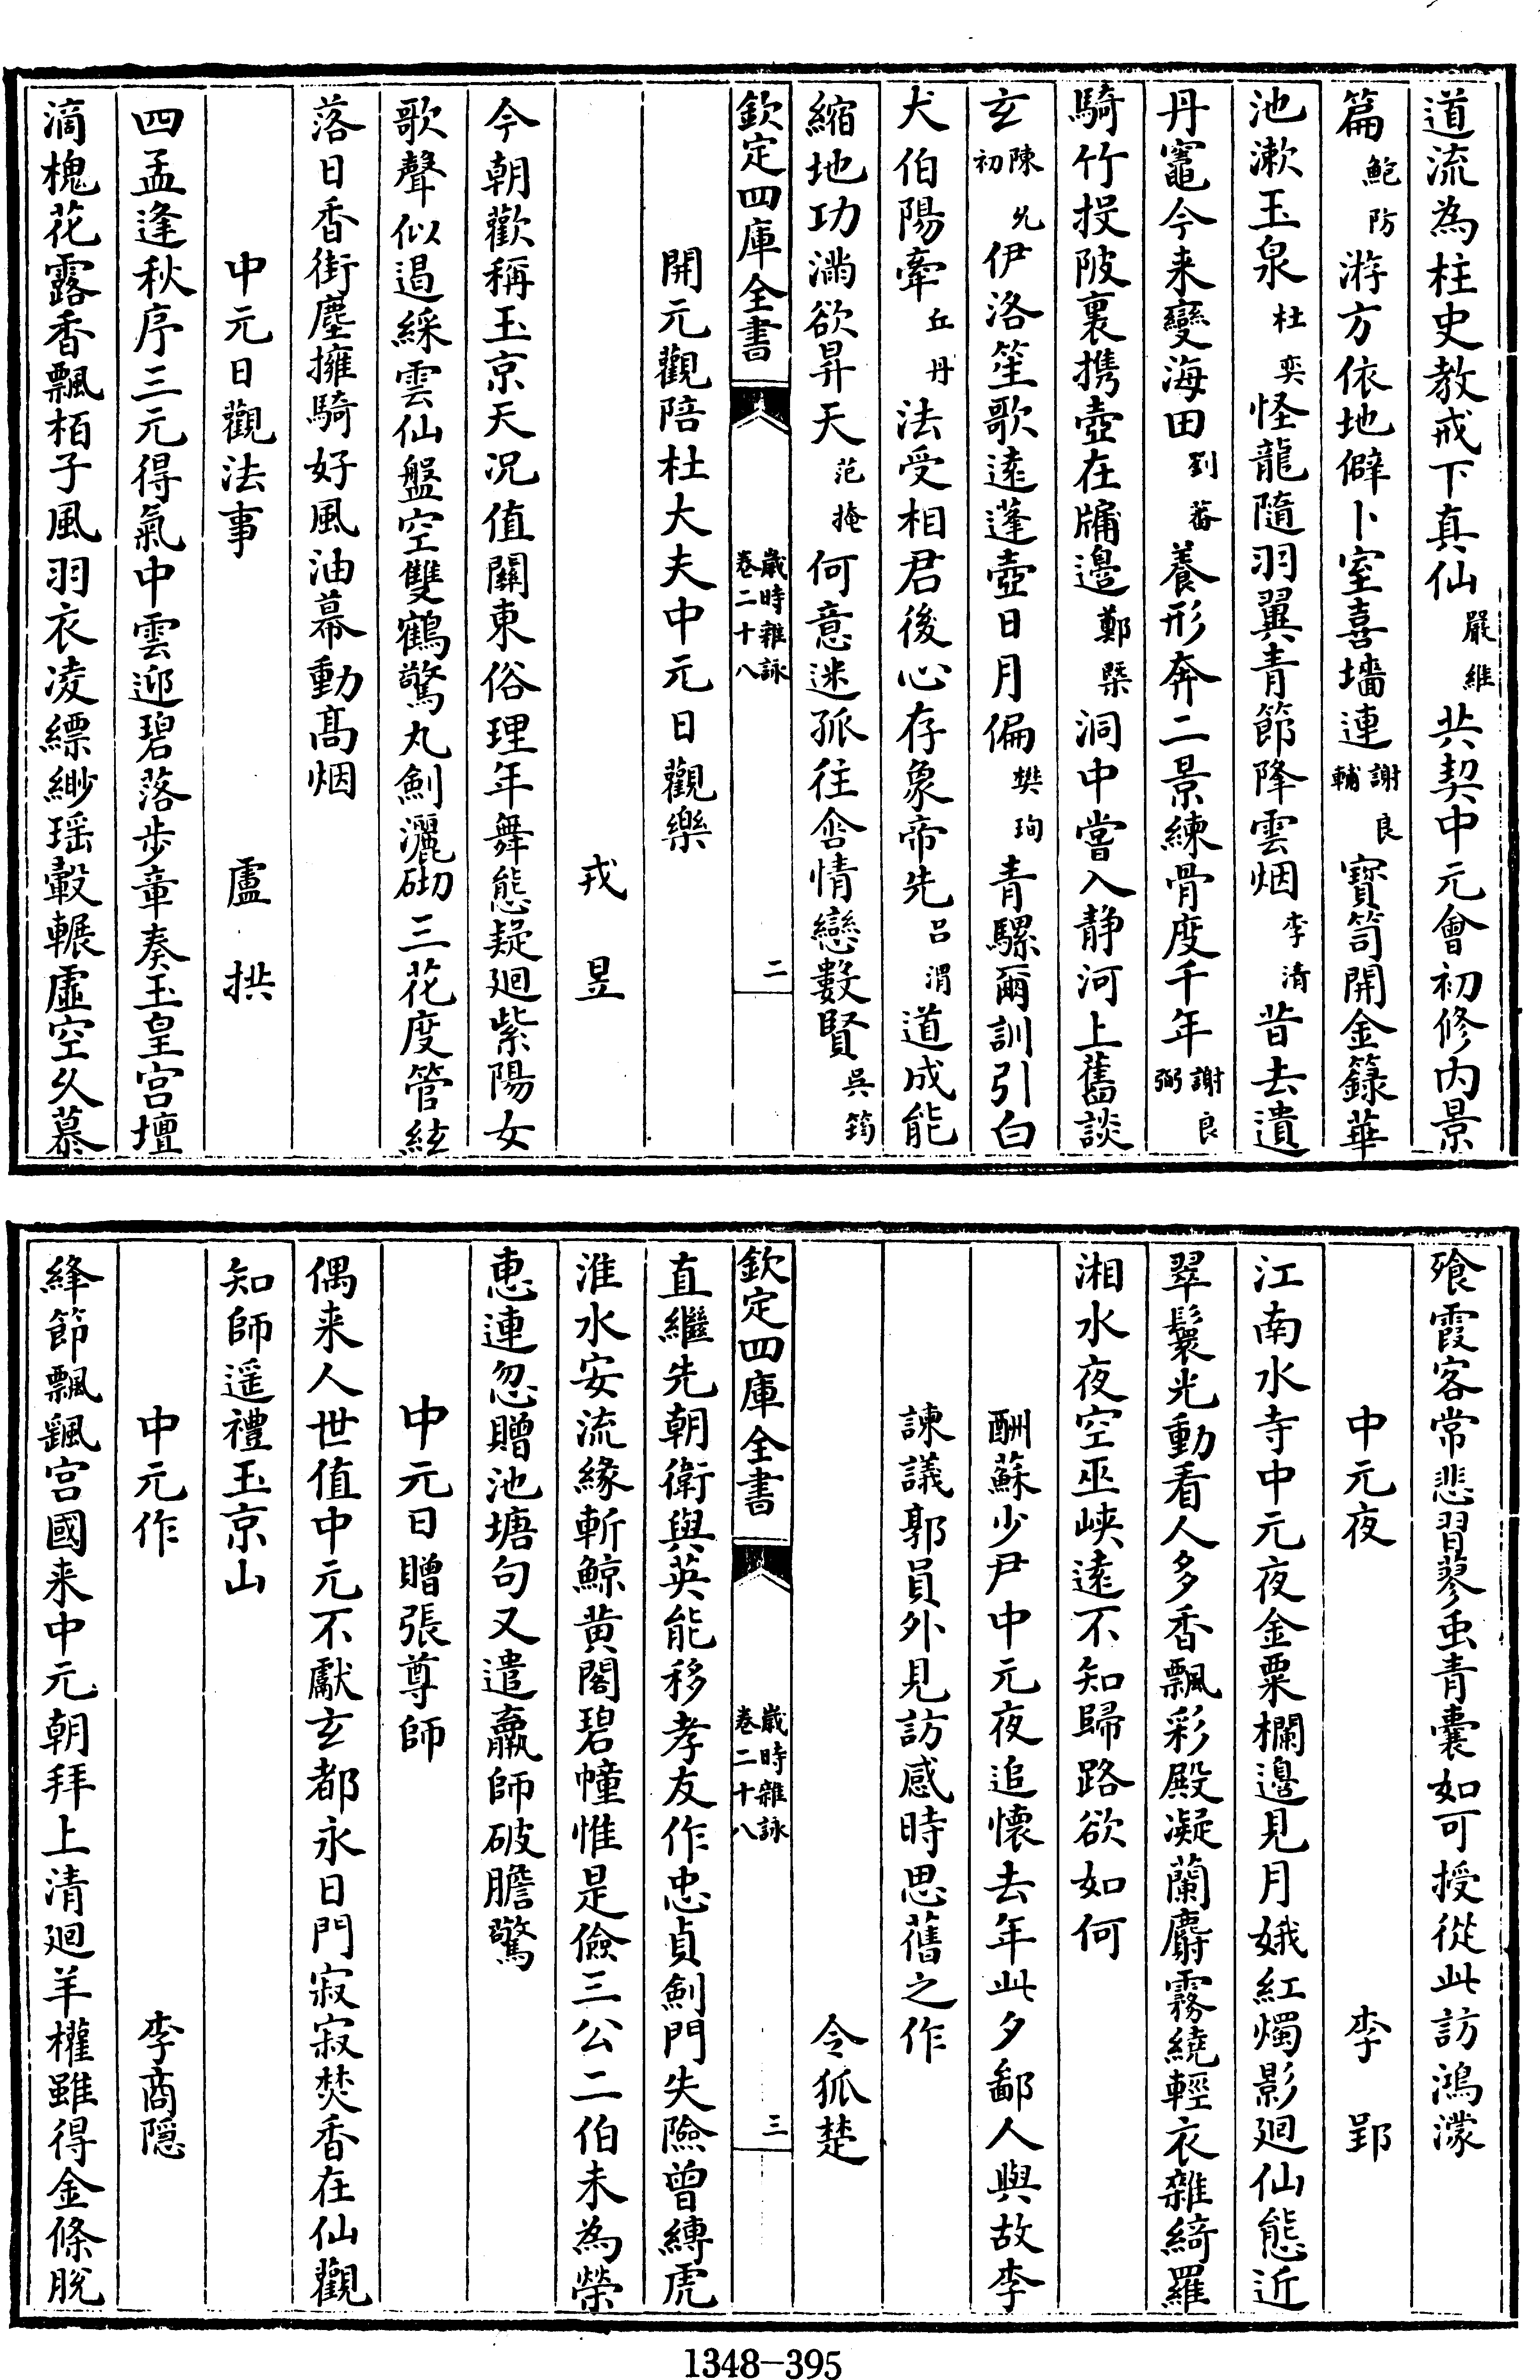 道流為柱史教戒下真仙嚴維共契中元會初修内景
篇鮑防游方依地僻卜室喜墻連謝良輔寳笥開金籙華
池漱玉泉杜奕怪龍隨羽翼青節降雲烟李清昔去遺
丹竈今来變海田劉蕃養形奔二景練骨度千年謝良弼
騎竹投陂裏携壺在牖邊鄭槩洞中嘗入静河上舊談
玄陳元初伊洛笙歌逺蓬壺日月偏樊珣青騾爾訓引白
犬伯陽牽丘丹法受相君後心存象帝先吕渭道成能
縮地功滿欲昇天范掩何意迷孤往含情戀數賢吳筠
欽定四庫全書
歲時雜詠
卷二十八
二
開元觀陪杜大夫中元日觀樂
戎昱
今朝歡稱玉京天况值關東俗理年舞態疑廻紫陽女
歌聲似遏綵雲仙盤空雙鶴驚丸劍灑砌三花度管絃
落日香街塵擁騎好風油幕動髙烟
中元日觀法事
盧拱
四孟逢秋序三元得氣中雲迎碧落步章奏玉皇宫壇
滴槐花露香飄栢子風羽衣凌縹緲瑶轂輾虛空久慕
飱霞客常悲習蓼虫青囊如可授從此訪鴻濛
中元夜
李郢
江南水寺中元夜金粟欄邊見月娥紅燭影廻仙態近
翠鬟光動看人多香飄彩殿凝蘭麝霧繞輕衣雜綺羅
湘水夜空巫峽逺不知歸路欲如何
酬蘇少尹中元夜追懷去年此夕鄱人與故李
諫議郭員外見訪感時思舊之作
令狐楚
欽定四庫全書
歲時雜詠
卷二十八
三
直繼先朝衛與英能移孝友作忠貞劍門失險曾縛虎
淮水安流緣斬鯨黄閣碧幢惟是儉三公二伯未為榮
惠連忽贈池塘句又遣羸師破膽驚
中元日贈張尊師
偶来人世值中元不獻玄都永日門寂寂焚香在仙觀
知師遥禮玉京山
中元作
李商隠
絳節飄颻宫國来中元朝拜上清廻羊權雖得金條脱
1348-395